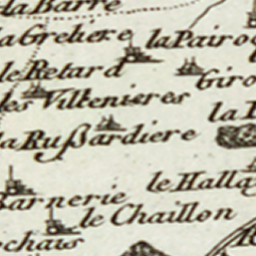 la Barre
la Grehere
la Pairo
le Retard
Giro
les Viltenieres
la Rußardiere
le Halla
Barnerie
le Chaillon
ochais